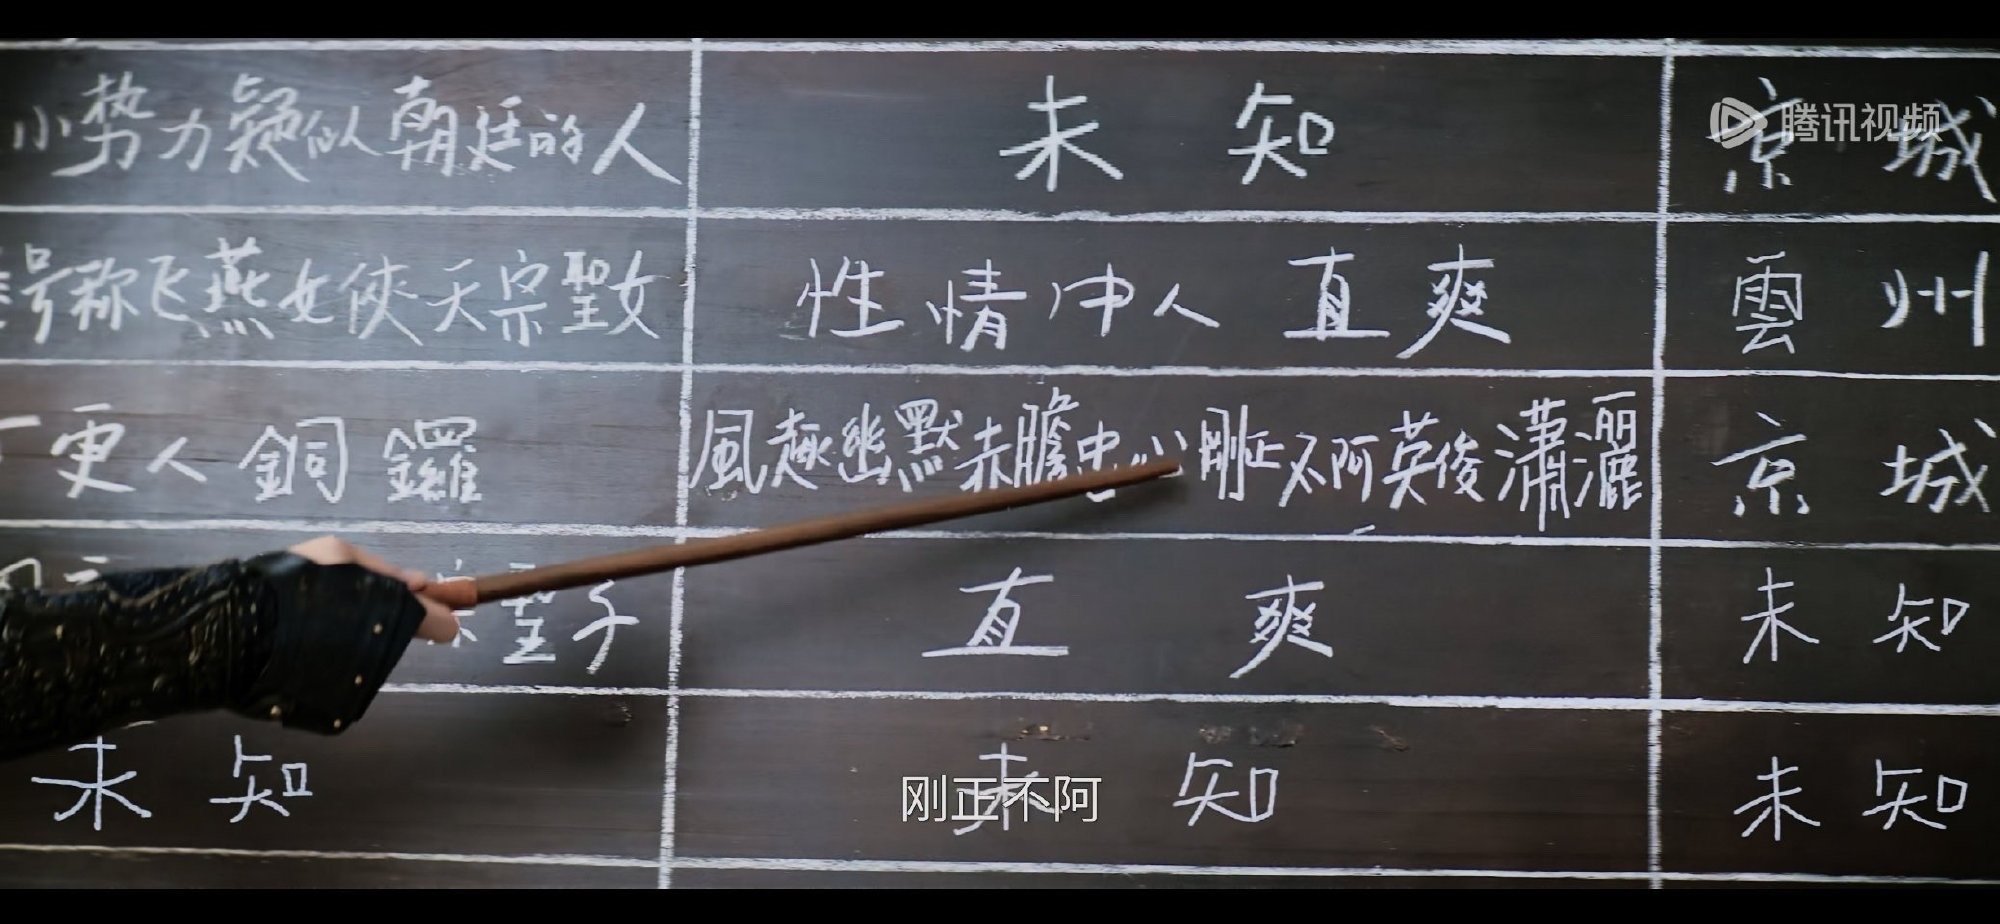 腾讯视频
小势力疑似朝廷的人 未知 京城
号称飞燕女俠天宗聖女 性情中人 直爽 雲州
更人銅鑼 風趣幽默赤膽忠心剛正不阿英俊瀟灑 京城
聖子 直爽 未知
未知 未知 未知
刚正不阿